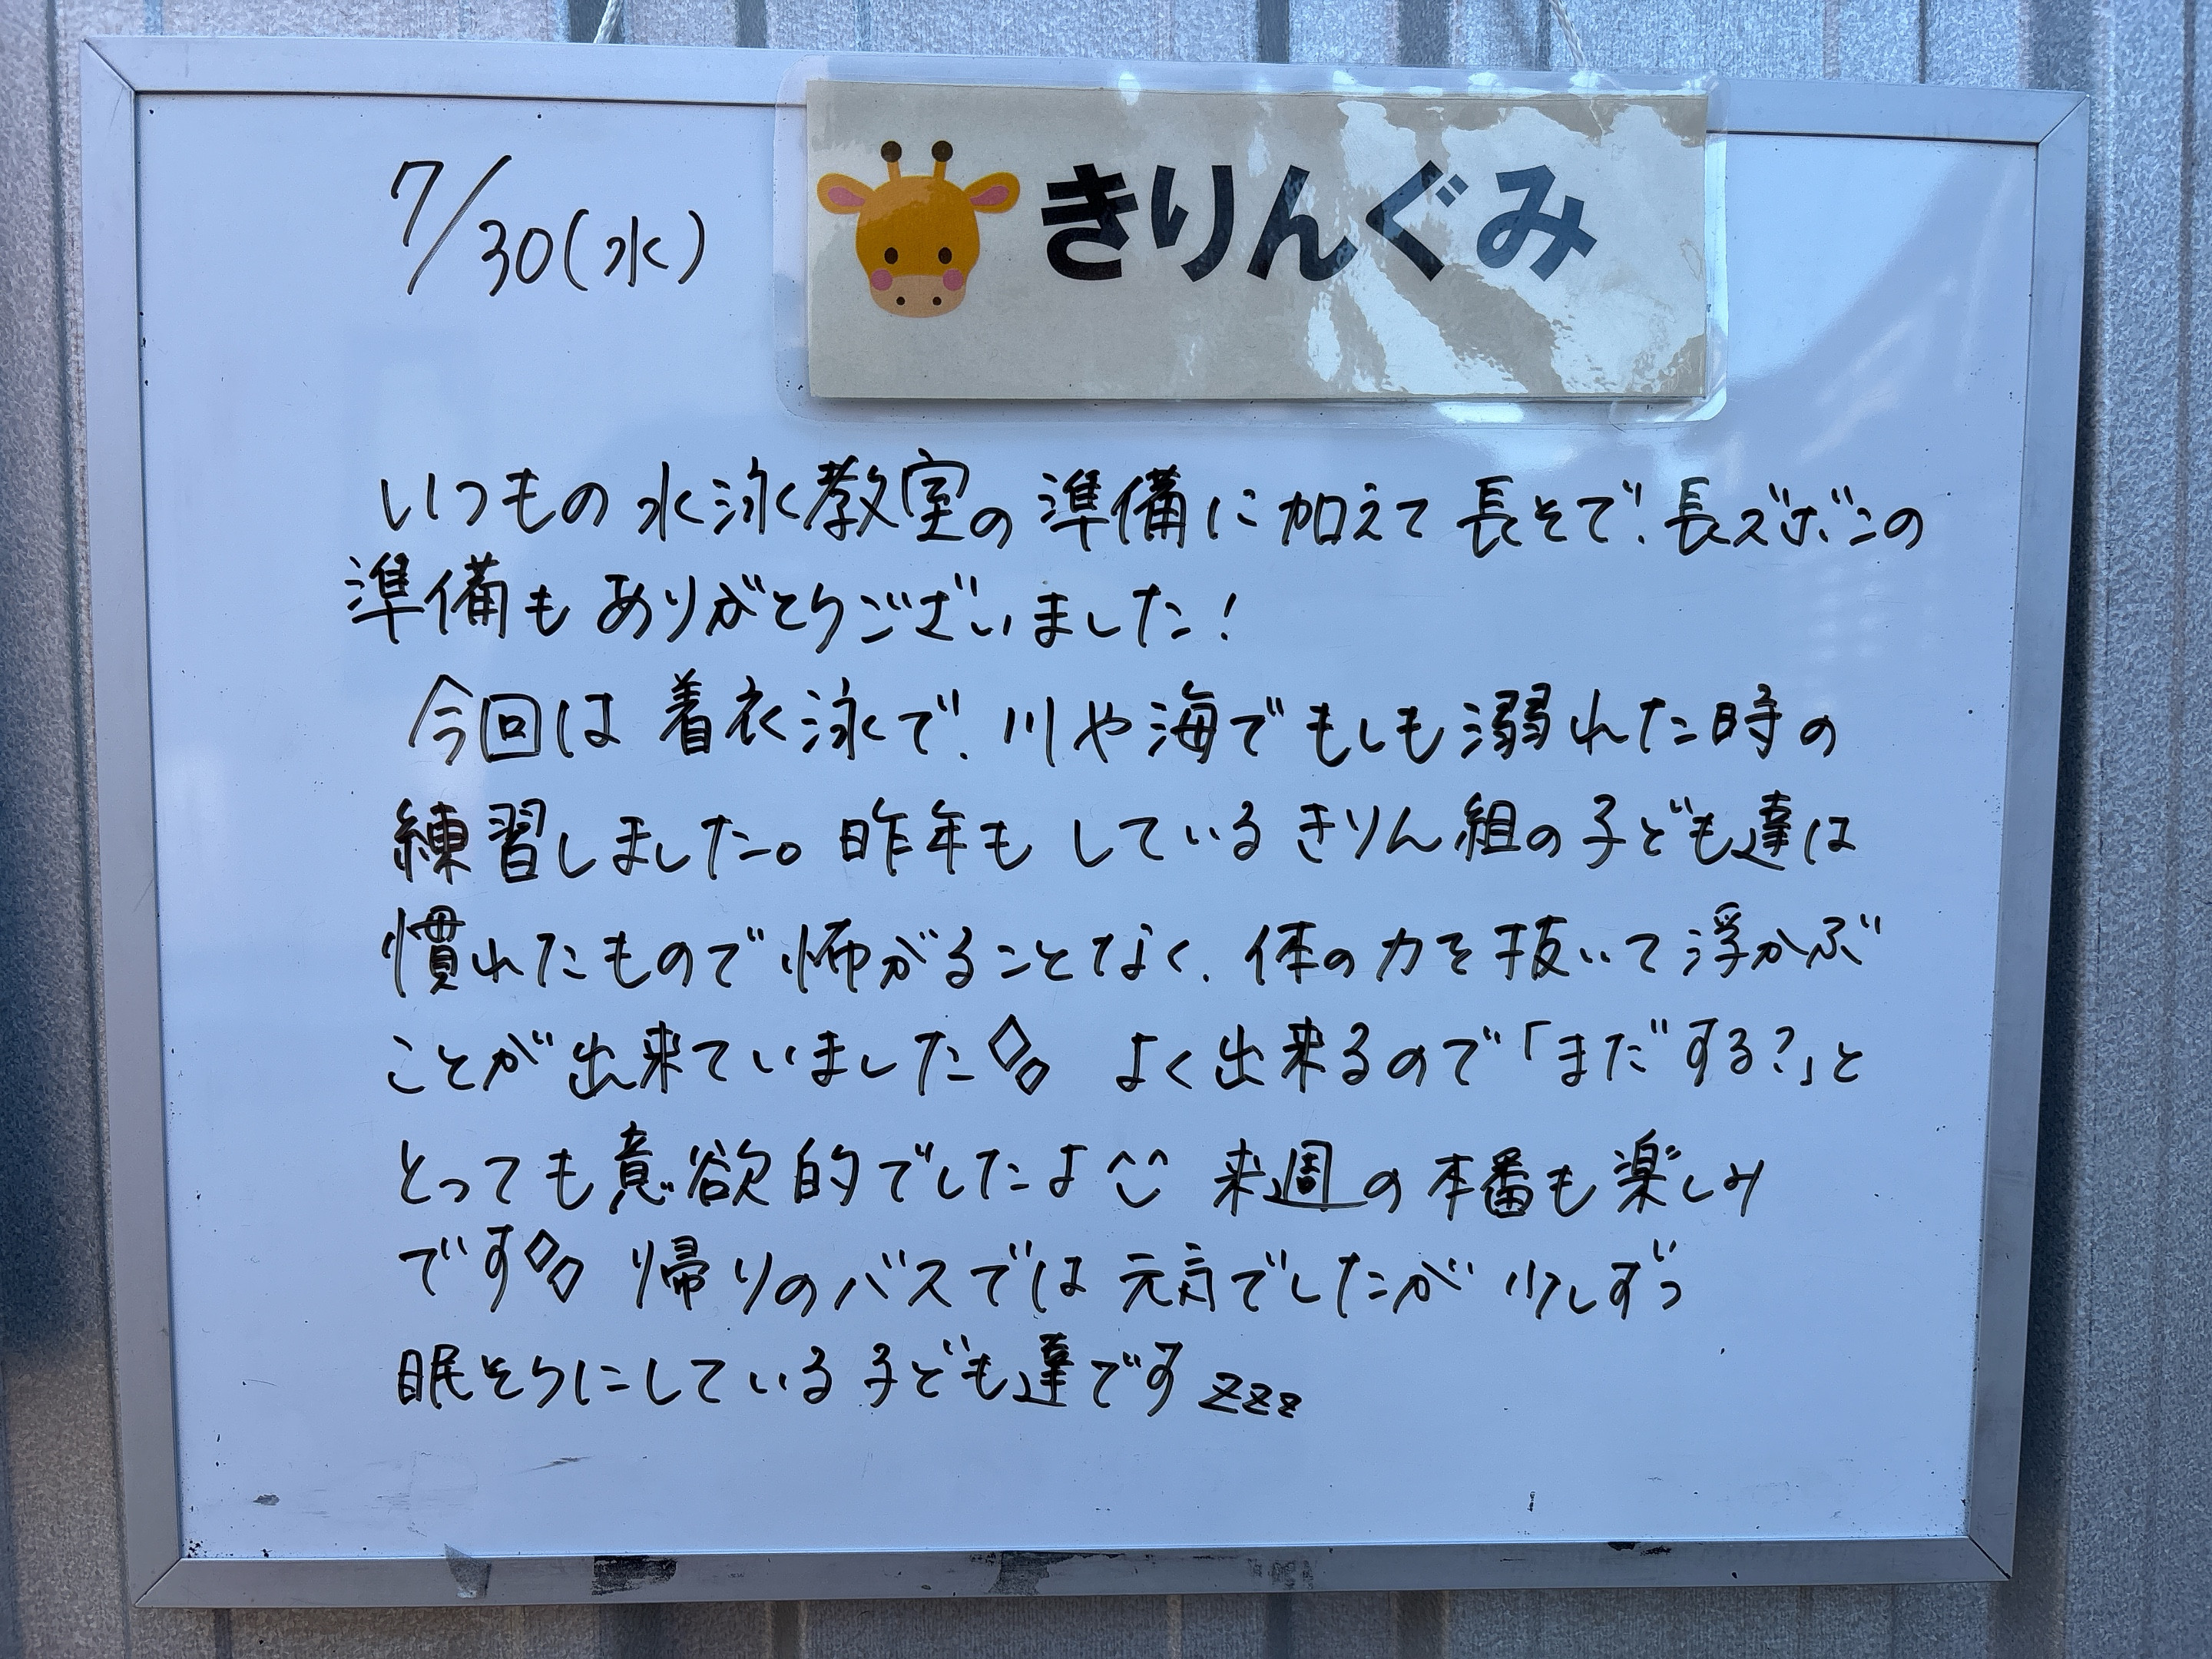 7/30(水)
きりんぐみ
いつもの水泳教室の準備に加えて長そで、長ズボンの
準備もありがとうございました!
今回は着衣泳で、川や海でもしも溺れた時の
練習しました。昨年もしているきりん組の子ども達は
慣れたもので怖がることなく、体の力を抜いて浮かぶ
ことが出来ていました◇◇ よく出来るので「まだする?」と
とっても意欲的でしたよ^^ 来週の本番も楽しみ
です◇◇ 帰りのバスでは元気でしたが少しずつ
眠そうにしている子ども達です zzz